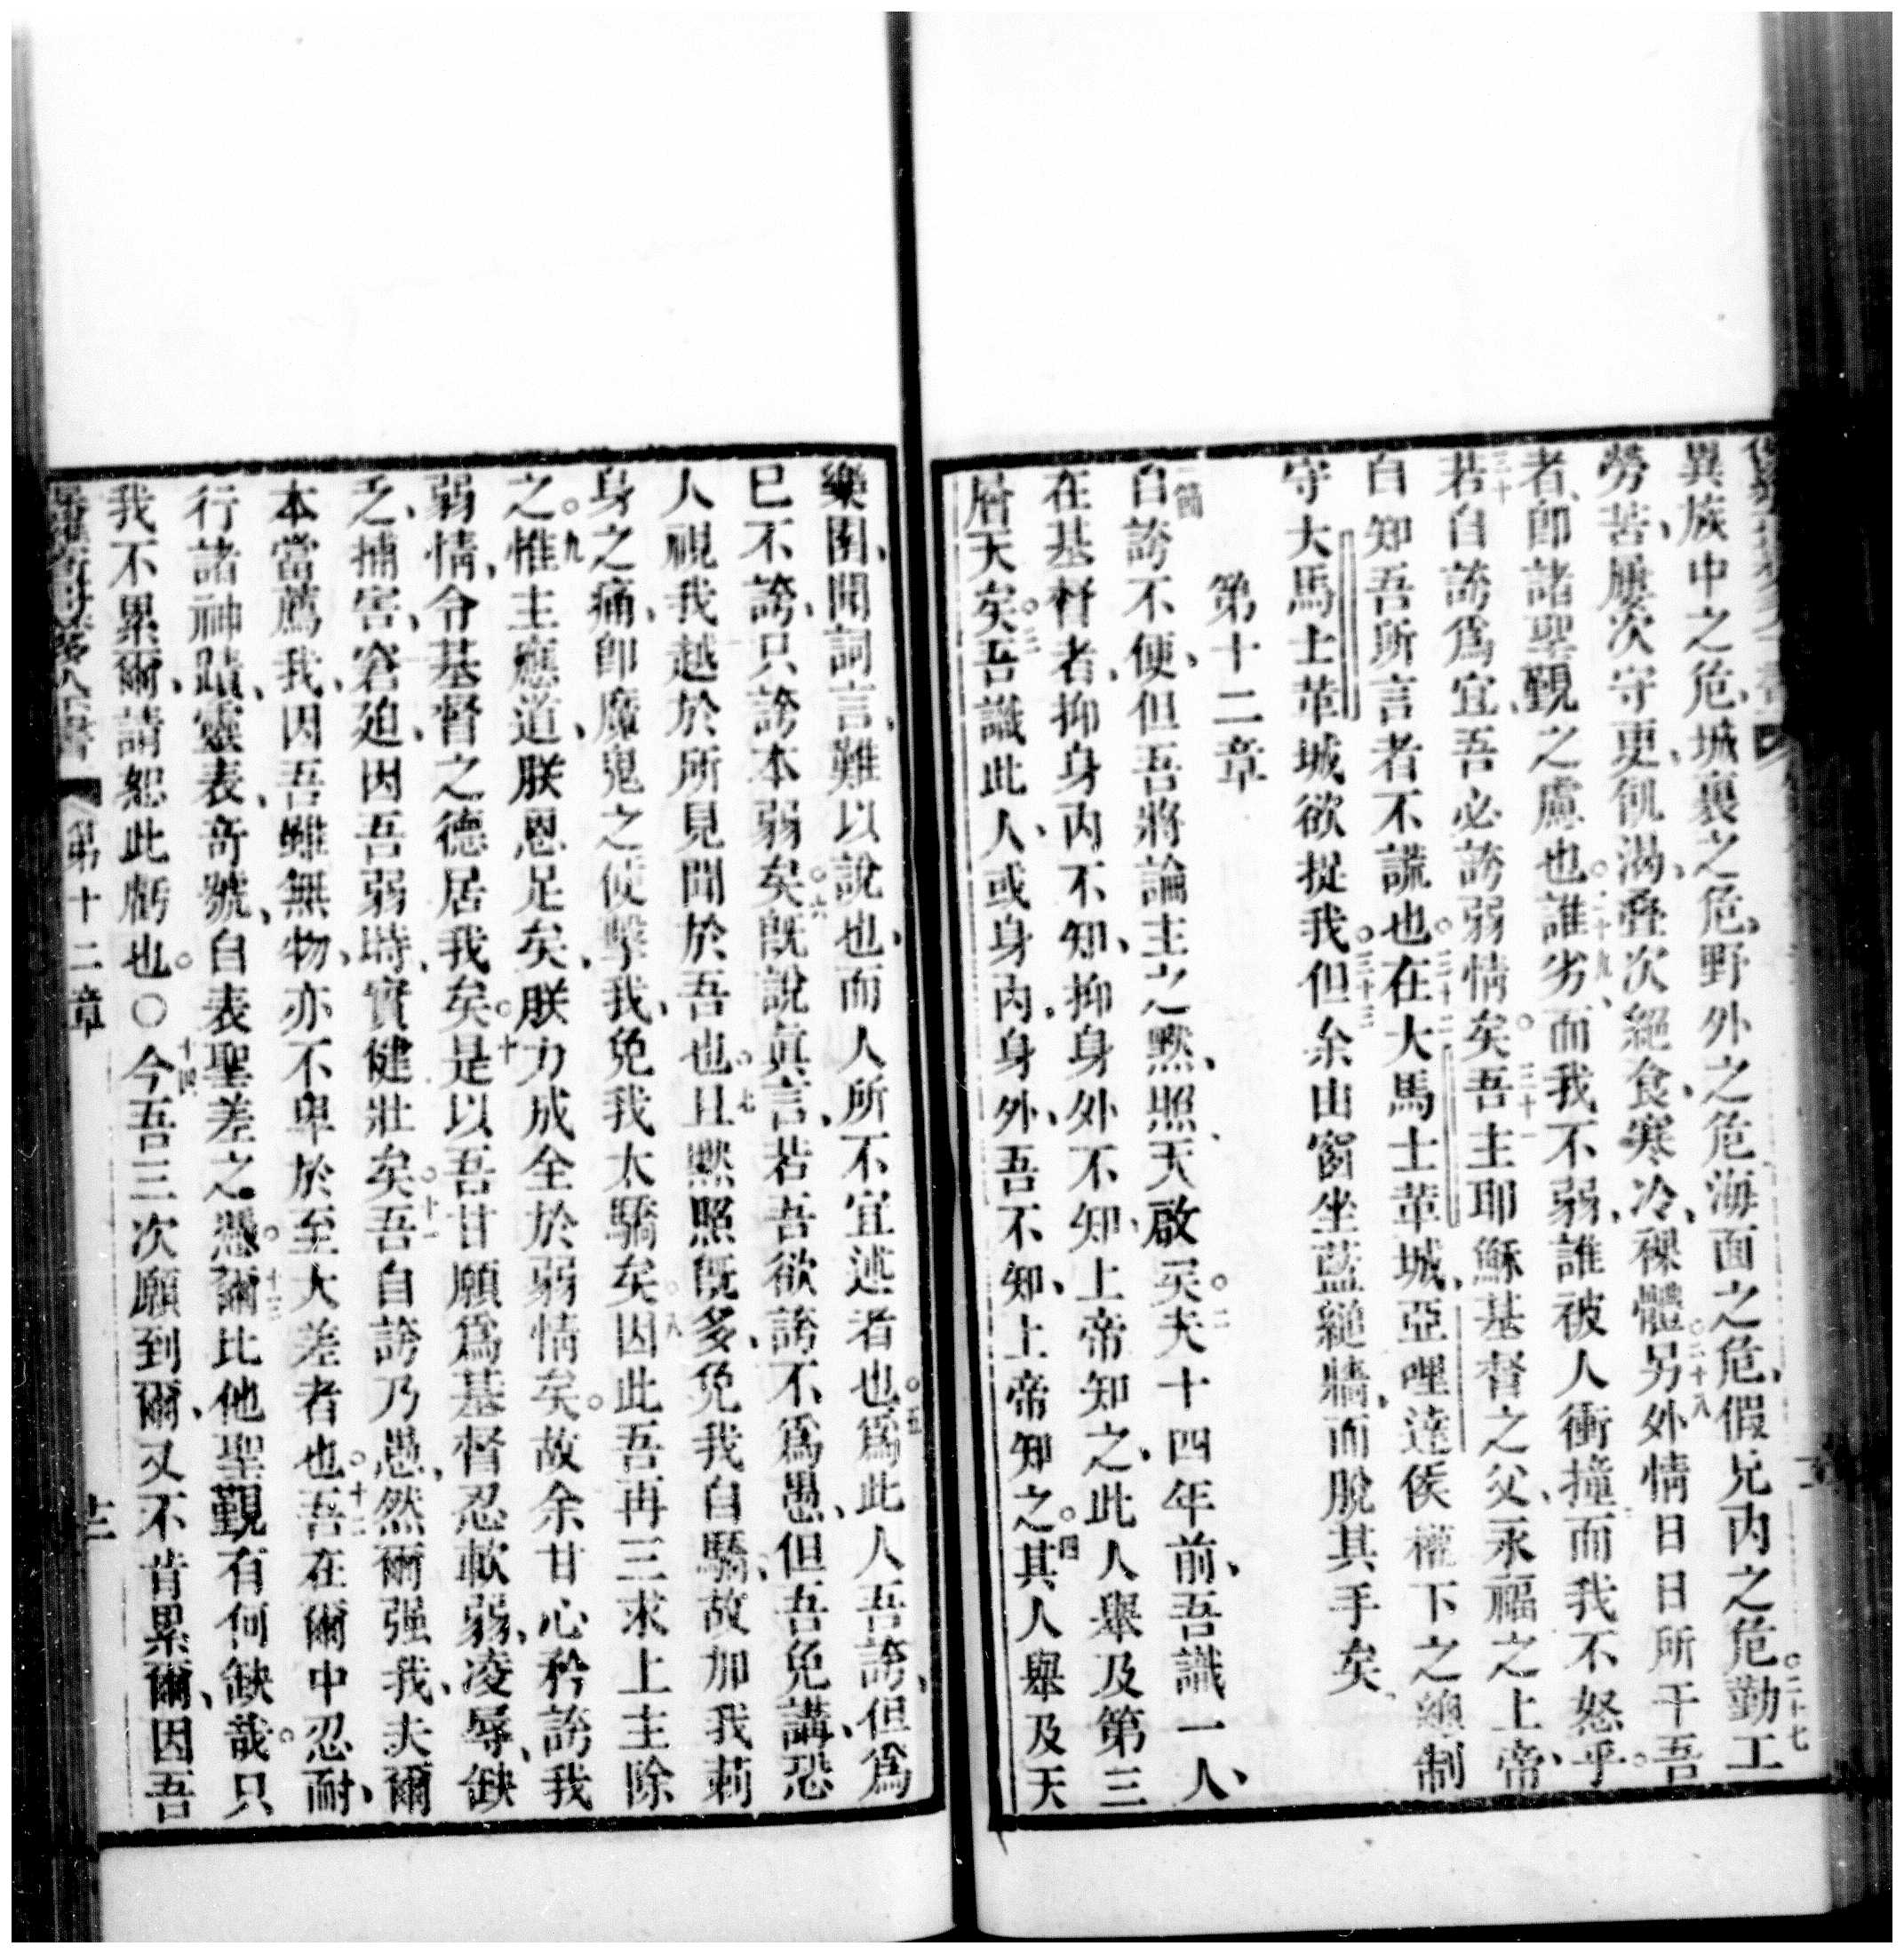 異族中之危、城裏之危、野外之危、海面之危、假兄內之危。二十七勤工
勞苦、屢次守更、飢渴、叠次絕食、寒冷、裸體。二十八另外情日日所干吾
者、即諸聖覲之慮也。二十九誰劣、而我不弱、誰被人衝撞而我不怒乎。
三十若自誇爲宜、吾必誇弱情矣。三十一吾主耶穌基督之父、永福之上帝、
自知吾所言者不謊也。三十二在大馬士革城、亞哩達侯權下之總制
守大馬士革城欲捉我。三十三但余由窗坐藍縋牆、而脫其手矣、
第十二章
一節自誇不便、但吾將論主之黙、照、天啟矣。二夫十四年前、吾識一人、
在基督者、抑身內不知、抑身外不知、上帝知之、此人舉及第三
層天矣。三吾識此人、或身內、身外、吾不知、上帝知之。四其人舉及天
樂園、聞詞言、難以說也、而人所不宜述者也。五爲此人吾誇、但爲
已不誇、只誇本弱矣。六旣說眞言、若吾欲誇、不爲愚、但吾免講、恐
人視我越於所見聞於吾也。七且黙照旣多、免我自驕、故加我莿
身之痛、卽魔鬼之使擊我、免我太驕矣。八因此吾再三求上主除
之。九惟主應道、朕恩足矣、朕力成全於弱情矣。故余甘心矜誇我
弱情、令基督之德居我矣。十是以吾甘願爲基督忍軟弱、凌辱、缺
乏、捕害、窘廹、因吾弱時、實健壯矣。十一吾自誇乃愚、然爾强我、夫爾
本當薦我、因吾雖無物、亦不卑於至大差者也。十二吾在爾中忍耐、
行諸神蹟、靈表、奇號、自表聖差之憑。十三爾比他聖覲有何缺哉。只
我不累爾、請恕此虧也。〇十四今吾三次願到爾、又不肯累爾、因吾
第十二章
十二